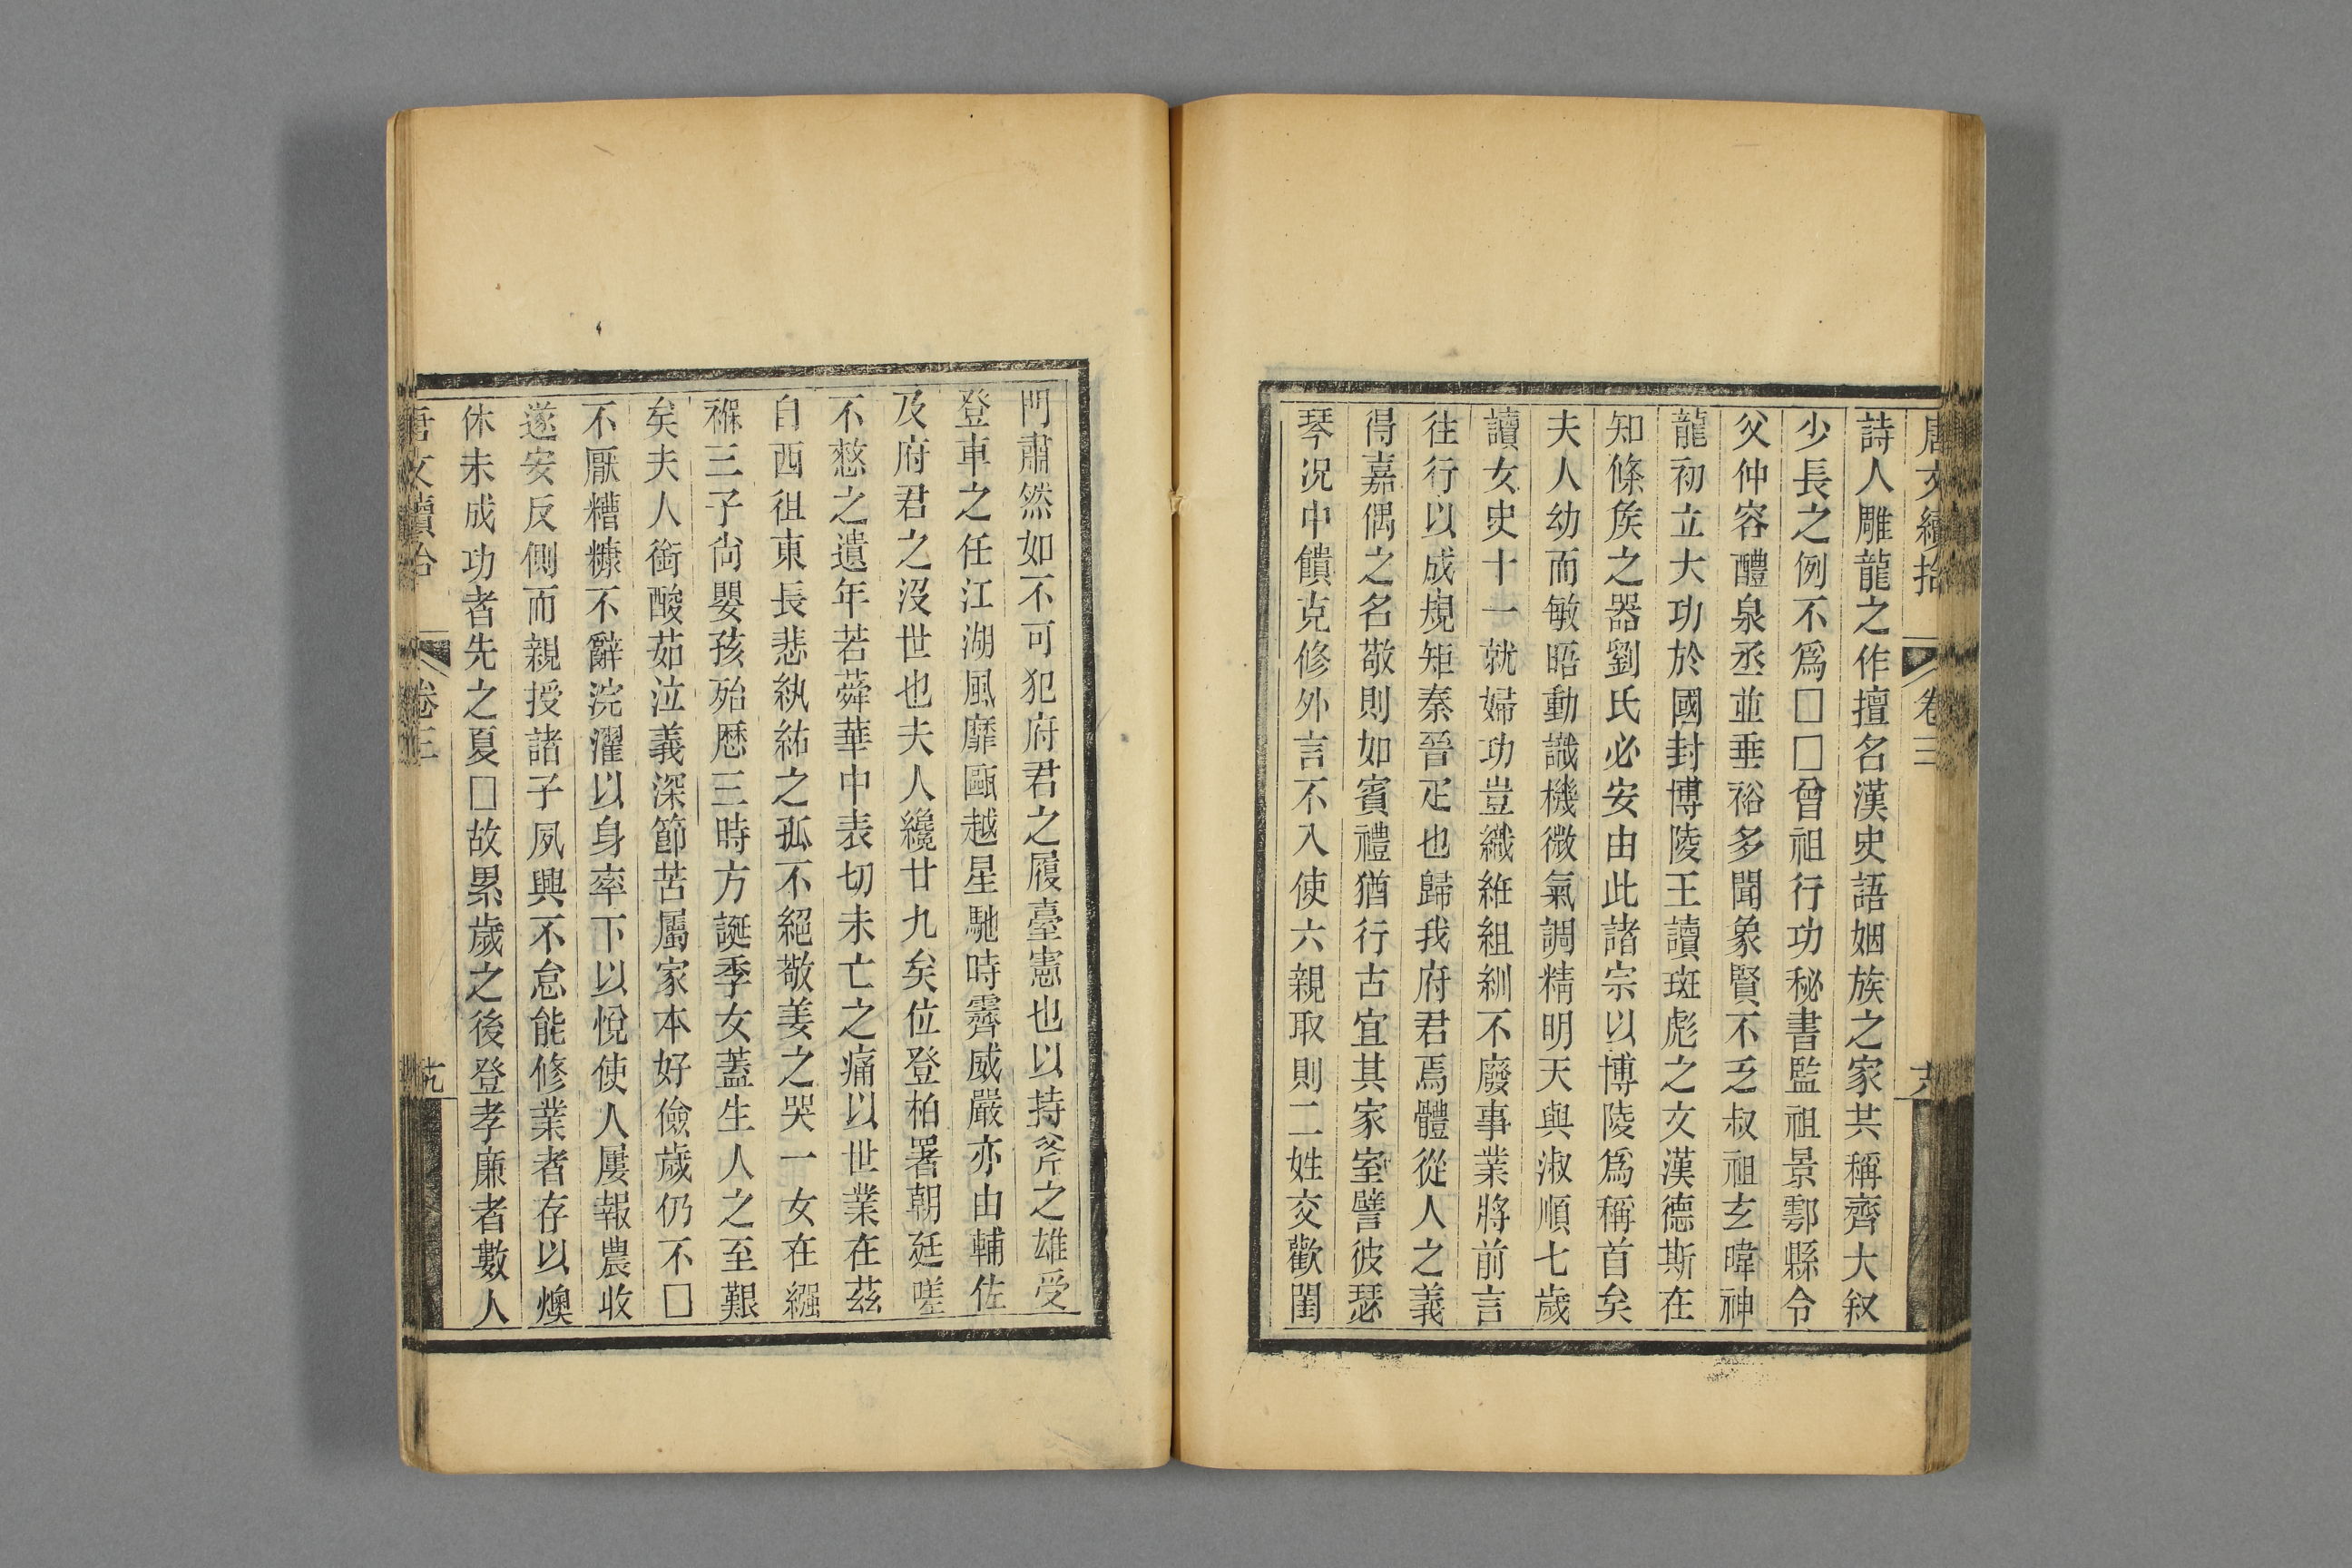 唐文續拾 卷三 大
詩人雕龍之作擅名漢史語姻族之家共稱齊大叙
少長之例不爲□□曾祖行功秘書監祖景鄠縣令
父仲容醴泉丞並垂裕多聞象賢不乏叔祖玄暐神
龍初立大功於國封博陵王讀班彪之文漢德斯在
知條矦之器劉氏必安由此諸宗以博陵爲稱首矣
夫人幼而敏晤動識機微氣調精明天與淑順七歲
讀女史十一就婦功豈織維組紃不廢事業將前言
往行以成規矩秦晉疋也歸我府君焉體從人之義
得嘉偶之名敬則如賓禮猶行古宜其家室譬彼瑟
琴況中饋克修外言不入使六親取則二姓交歡閨
門肅然如不可犯府君之履臺憲也以持斧之雄受
登車之任江湖風靡甌越星馳時霽威嚴亦由輔佐
及府君之沒世也夫人纔廿九矣位登柏署朝廷嗟
不憖之遺年若蕣華中表切未亡之痛以世業在茲
自西徂東長悲紈絝之孤不絕敬姜之哭一女在繦
褓三子尙嬰孩殆歷三時方誕季女蓋生人之至艱
矣夫人銜酸茹泣義深節苦屬家本好儉歲仍不□
不厭糟糠不辭浣濯以身率下以悅使人屢報農收
遂安反側而親授諸子夙興不怠能修業者存以燠
休未成功者先之夏□故累歲之後登孝廉者數人
唐文續拾 卷三